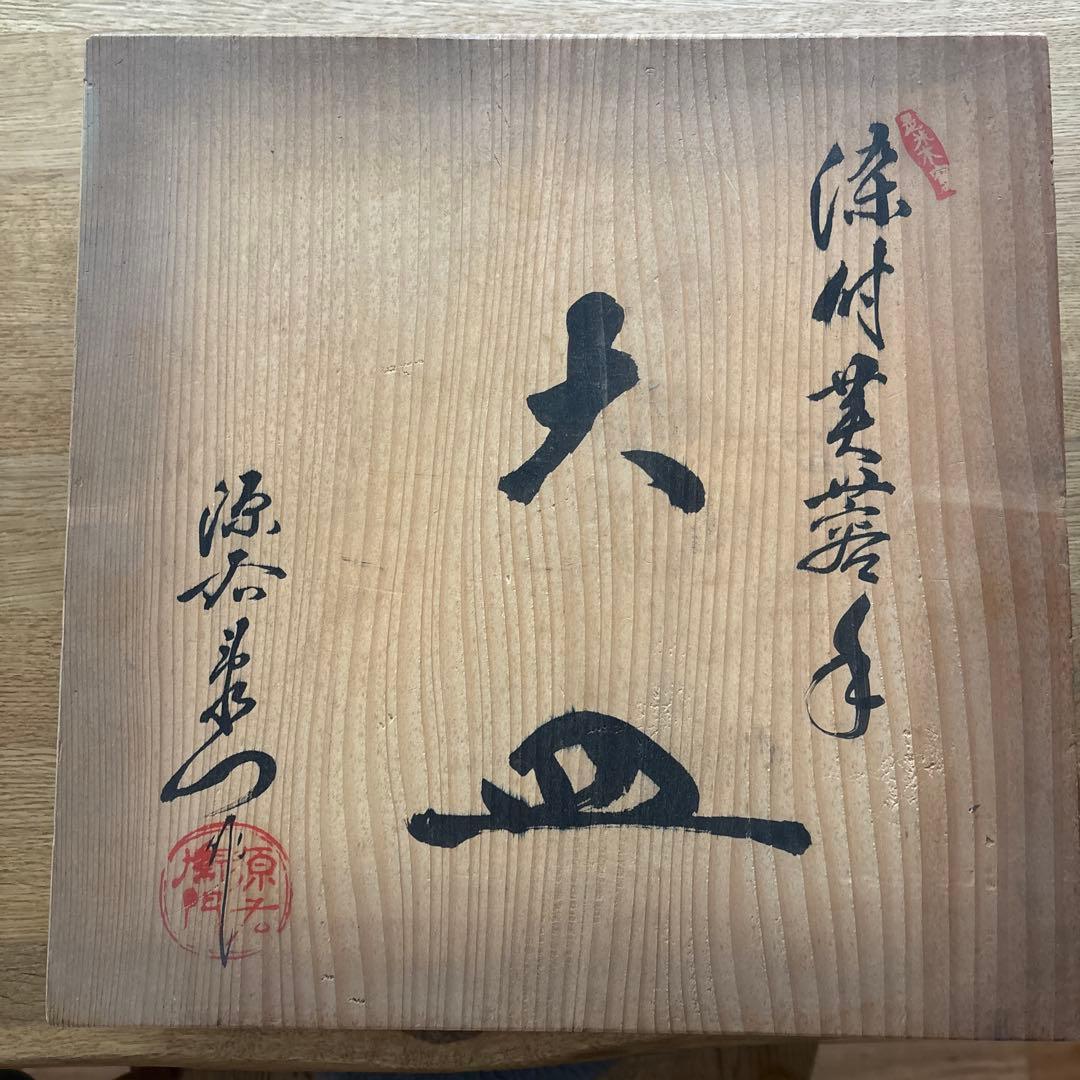 染付芙蓉手
大皿
源右衛門作
源右
衛門